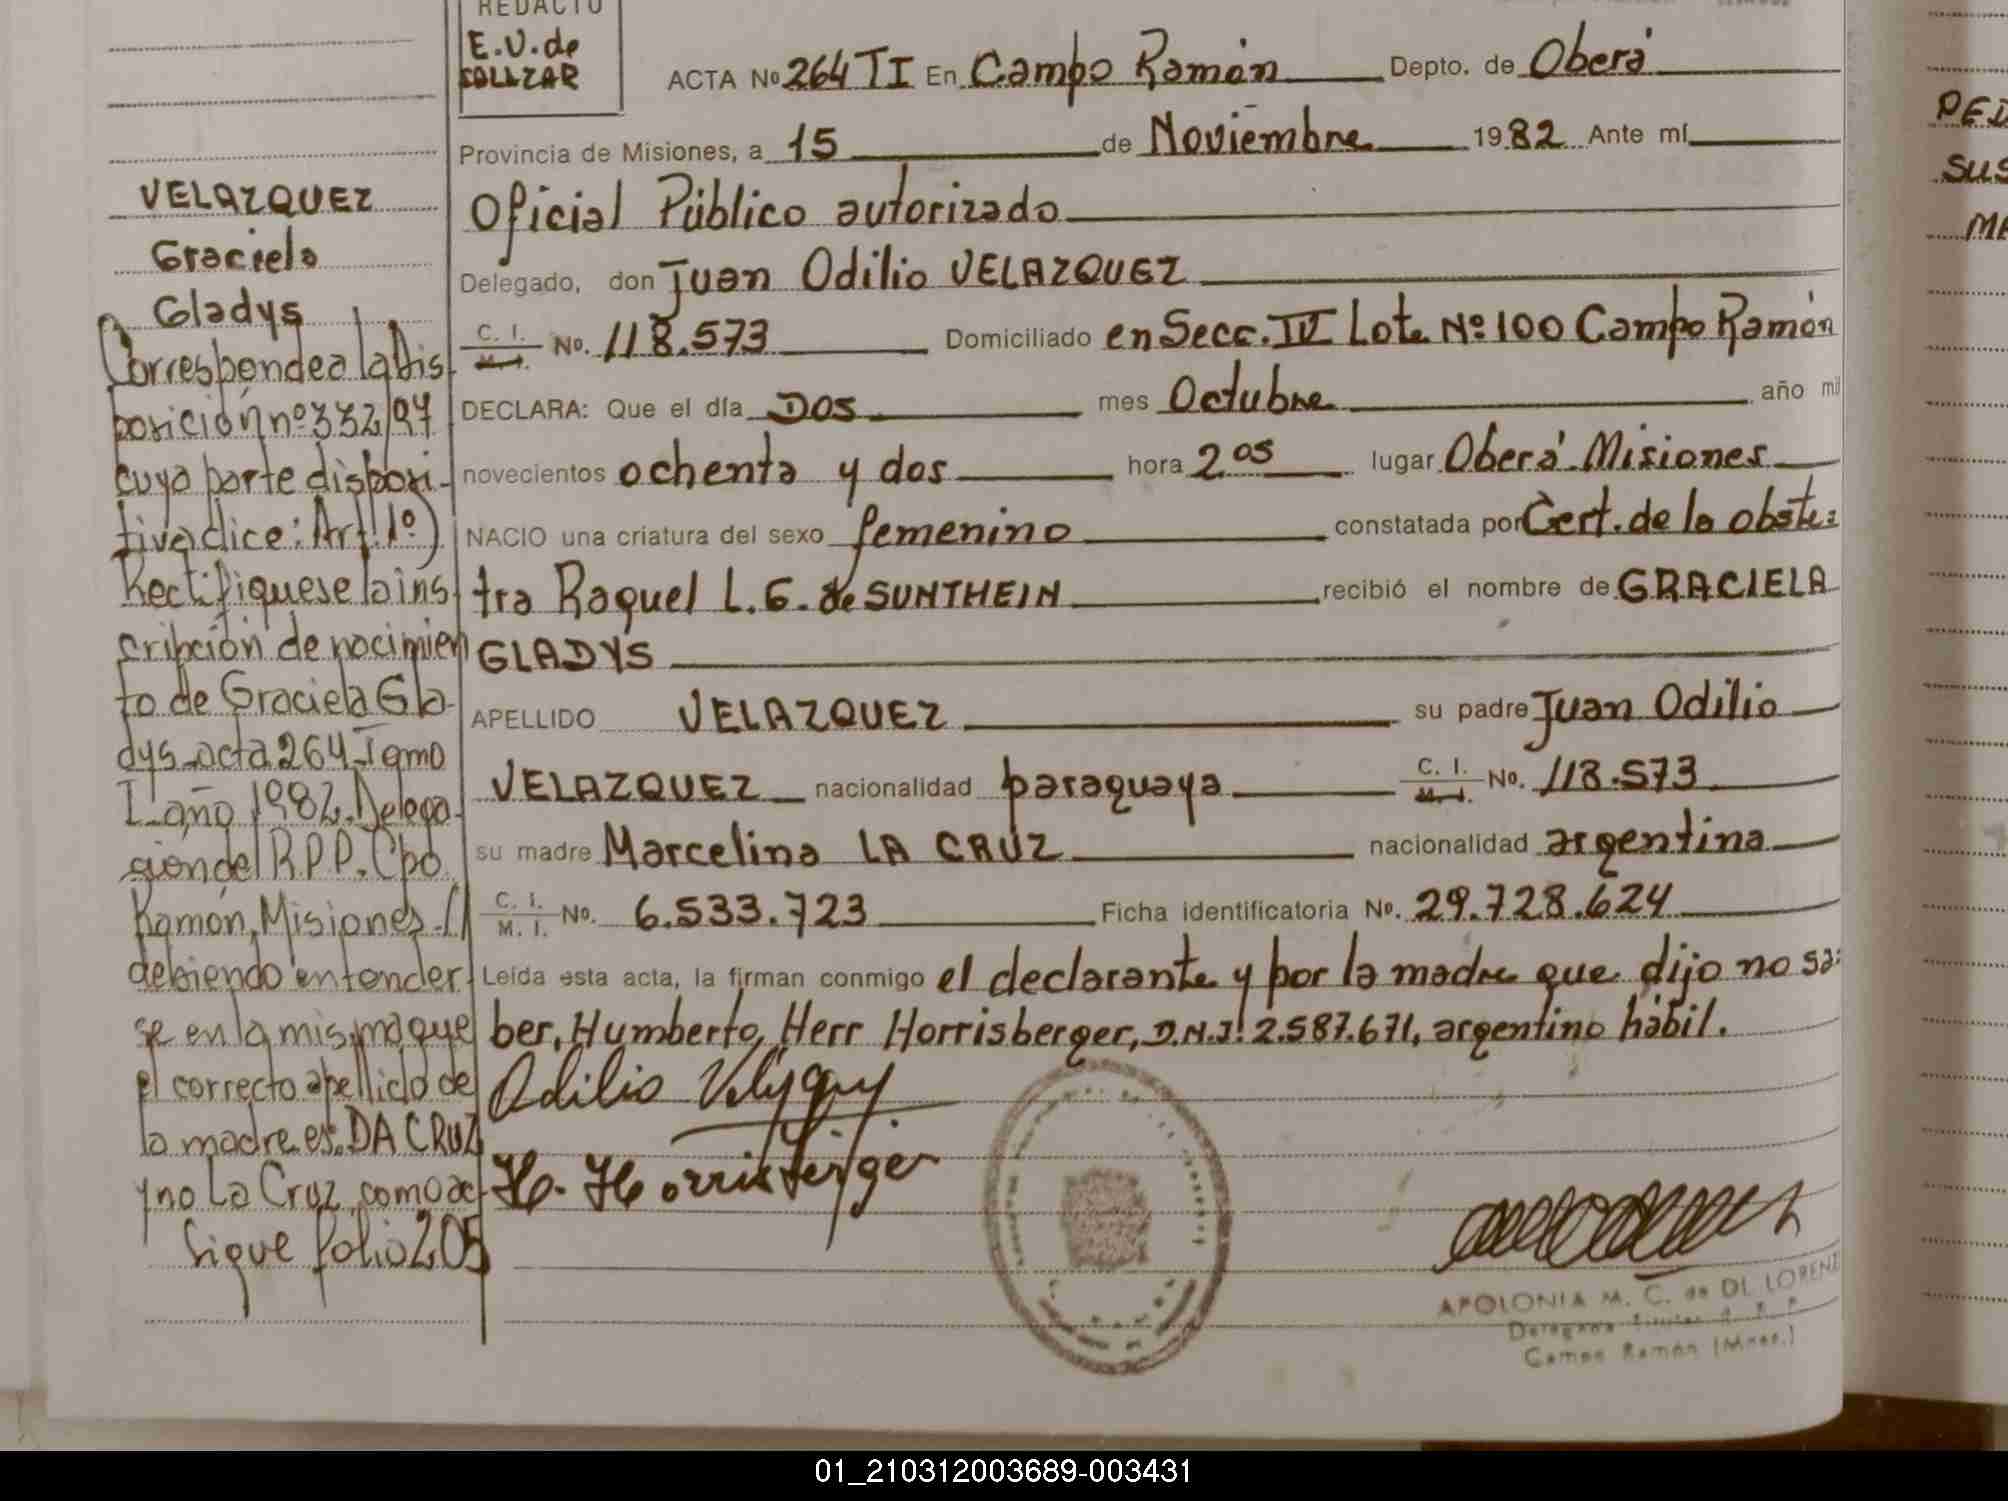 REDACTO
E.V. de
SOLEZAR
ACTA No 264 TI En Campo Ramón Depto. de Oberá
Provincia de Misiones, a 15 de Noviembre 1982 Ante mí
Oficial Público autorizado
Delegado, don Juan Odilio VELAZQUEZ
C. I. M. I. No. 118.573 Domiciliado en Secc. IV Lote Nº 100 Campo Ramón
DECLARA: Que el día DOS mes Octubre año mil
novecientos ochenta y dos hora 2 05 lugar Oberá-Misiones
NACIO una criatura del sexo femenino constatada por Cert. de la obste=
tra Raquel L. G. de SUNTHEIN recibió el nombre de GRACIELA
GLADYS
APELLIDO VELAZQUEZ su padre Juan Odilio
VELAZQUEZ nacionalidad paraguaya C. I. M. I. No. 118.573
su madre Marcelina LA CRUZ nacionalidad argentina
C. I. M. I. No. 6.533.723 Ficha identificatoria No. 29.728.624
Leída esta acta, la firman conmigo el declarante y por la madre que dijo no sa=
ber, Humberto, Herr Horrisberger, D.N.I. 2.587.671, argentino hábil.
Odilio
H. Horrisberger
APOLONIA M. C. de DI LORENZ
Delegada Titular R. P. P.
Campo Ramón (Mnes.)
VELAZQUEZ
Graciela
Gladys
Corresponde a la Dis
posición nº 332/97
cuya parte disposi-
tiva dice: Art. 1º)
Rectifiquese la ins
cripción de nacimien
to de Graciela Gla-
dys acta 264 Tomo
I año 1982. Delega-
ción del R.P.P. Cpo.
Ramón, Misiones.-
debiendo entender
se en la misma que
el correcto apellido de
la madre es: DA CRUZ
y no La Cruz, como ac
Sigue folio 205
PED
SUS
MA
01_210312003689-003431